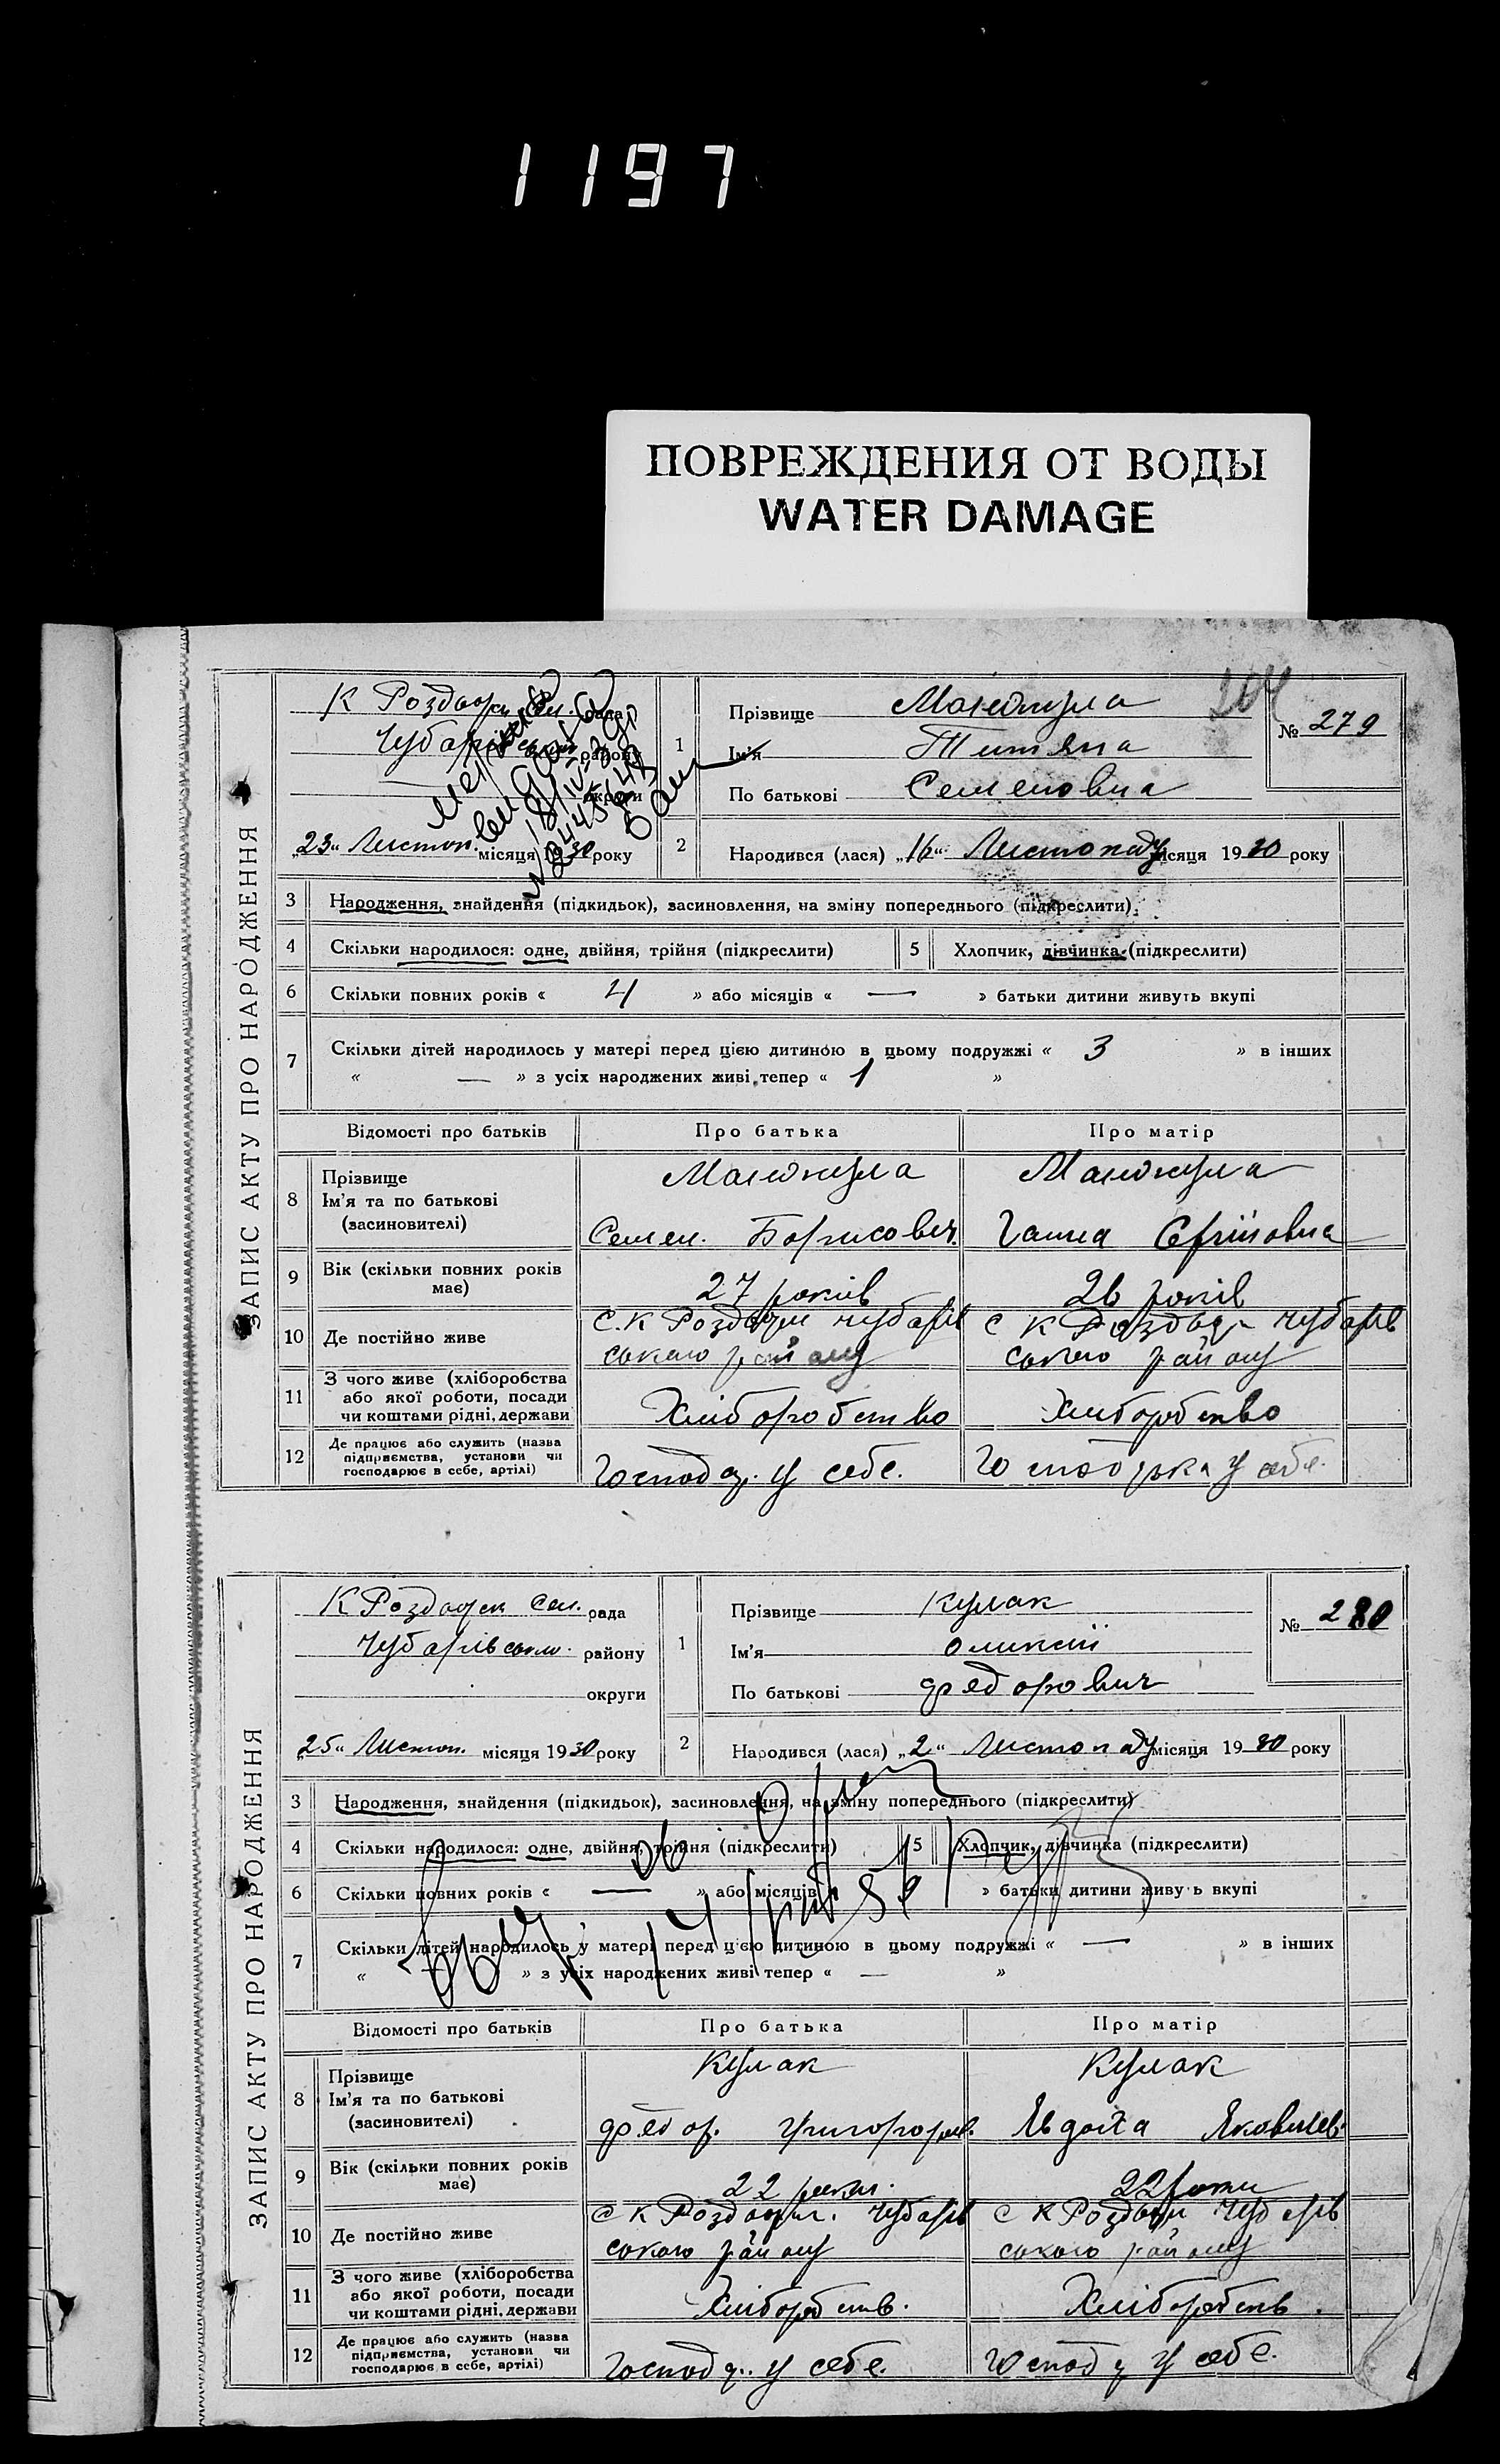 1197
ПОВРЕЖДЕНИЯ ОТ ВОДЫ
WATER DAMAGE
ЗАПИС АКТУ ПРО НАРОДЖЕННЯ
К Роздори рада
району
округи
„23“ Листоп. місяця 1930 року
1
Прізвище
Ім'я
По батькові Семеновна
№ 279
2
Народився (лася) „16“ Листопаду місяця 1930 року
3 Народження, знайдення (підкидьок), засиновлення, на зміну попереднього (підкреслити)
4 Скільки народилося: одне, двійня, трійня (підкреслити) 5 Хлопчик, дівчинка (підкреслити)
6 Скільки повних років « 4 » або місяців « — » батьки дитини живуть вкупі
7 Скільки дітей народилось у матері перед цією дитиною в цьому подружжі « 3 » в інших
« — » з усіх народжених живі тепер « 1 »
Відомості про батьків Про батька Про матір
8 Прізвище
Ім'я та по батькові
(засиновителі)
Семен. Борисович. Ганна
9 Вік (скільки повних років має) 27 років 26 років
10 Де постійно живе С. К Роздори чубарів С К Роздори чубарів
ського району ського району
11 З чого живе (хліборобства або якої роботи, посади чи коштами рідні, держави Хліборобство Хліборобство
12 Де працює або служить (назва підприємства, установи чи господарює в себе, артілі) Господ. у себе. у себе.
ЗАПИС АКТУ ПРО НАРОДЖЕННЯ
К Роздорск Сел. рада
Чубарівськ. району
округи
„25“ Листоп. місяця 1930 року
1
Прізвище Кулак
Ім'я Олексій
По батькові Федорович
№ 280
2
Народився (лася) „2“ Листопаду місяця 1930 року
3 Народження, знайдення (підкидьок), засиновлення, на зміну попереднього (підкреслити)
4 Скільки народилося: одне, двійня, трійня (підкреслити) 5 Хлопчик, дівчинка (підкреслити)
6 Скільки повних років « — » або місяців « » батьки дитини живуть вкупі
7 Скільки дітей народилось у матері перед цією дитиною в цьому подружжі « — » в інших
« » з усіх народжених живі тепер « — »
Відомості про батьків Про батька Про матір
8 Прізвище
Ім'я та по батькові
(засиновителі)
Кулак Кулак
Федор. Явдоха Яковлев.
9 Вік (скільки повних років має) 22 роки. 22 роки
10 Де постійно живе С К Роздори. Чубарів С К Роздори Чубарів
ського району ського району
11 З чого живе (хліборобства або якої роботи, посади чи коштами рідні, держави Хлібороб ств. Хліборобств.
12 Де працює або служить (назва підприємства, установи чи господарює в себе, артілі) Господ. у себе. Господ у себе.